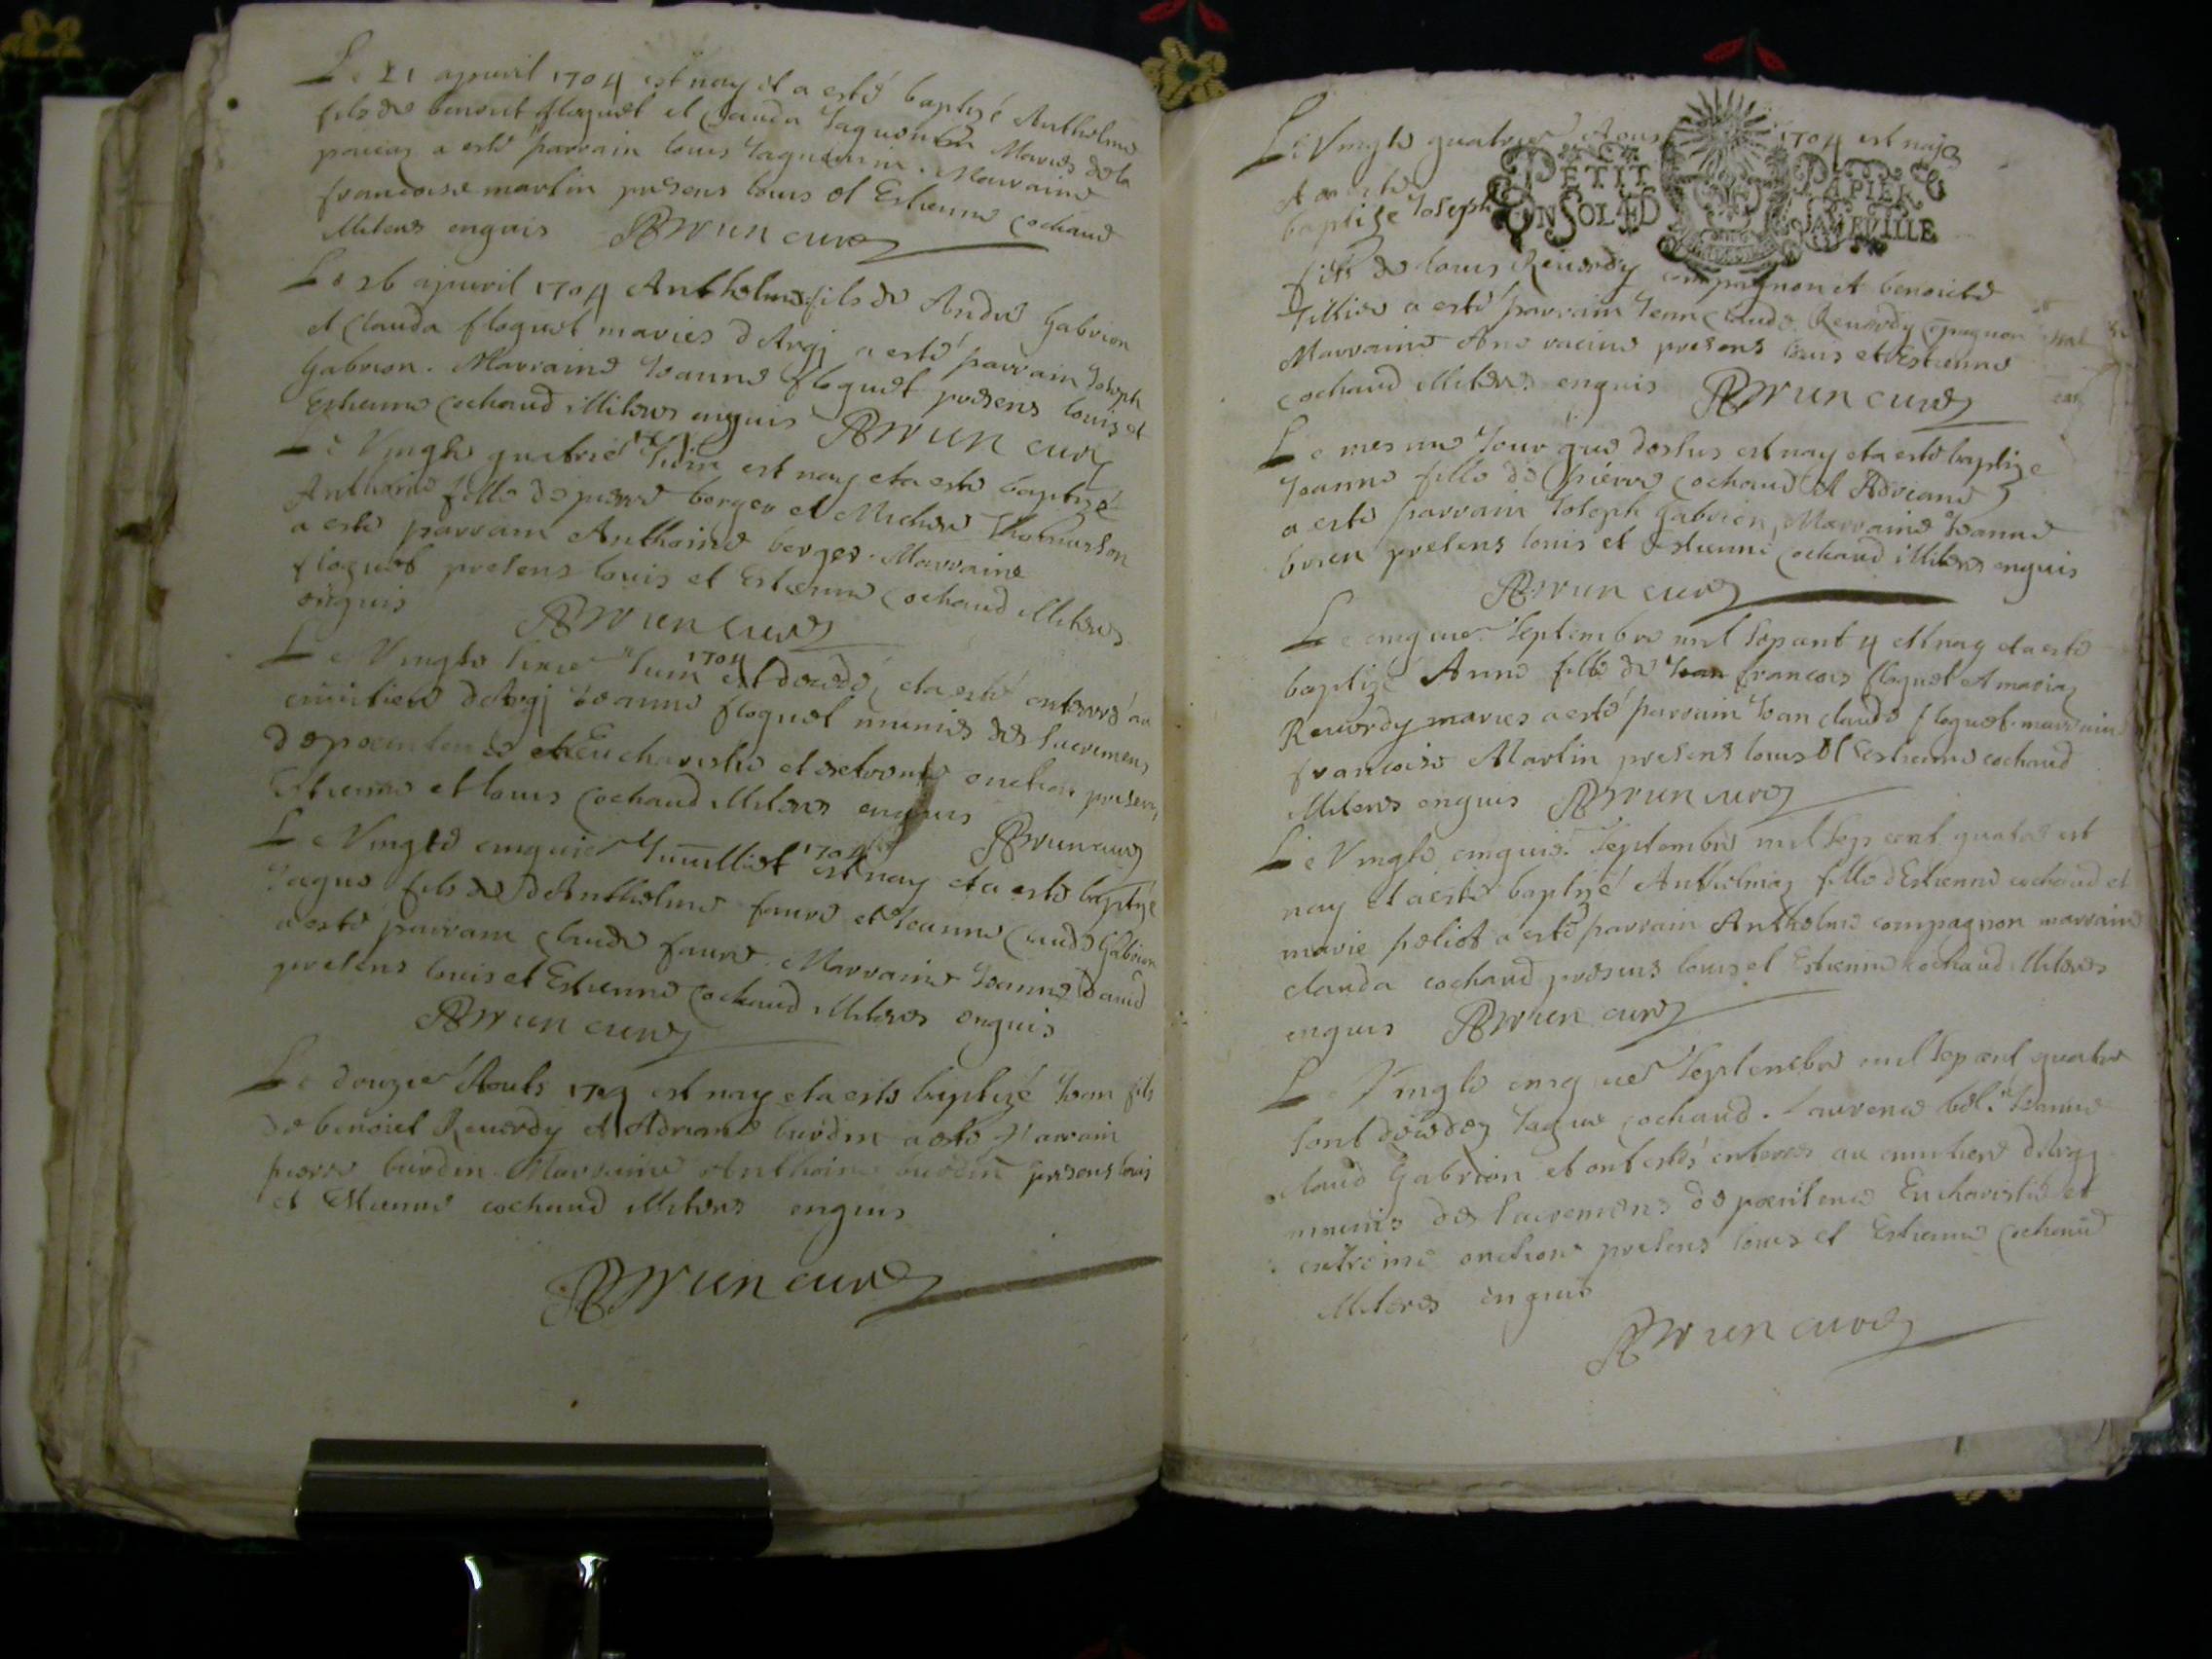 Le 21 apuril 1704 est nay et a esté baptizé Anthelme
fils de benoit floquet et Clauda Jaquemin Mariés de la
a esté parrain louis Jaquemin. Marraine
francoise martin presens louis et Estienne Cochaud
illiteres enquis Brun curé
Le 26 apuril 1704 Anthelme fils de André Gabrion
et Clauda floquet mariés d'Argj a esté parrain Joseph
Gabrion. Marraine Jeanne floquet presens louis et
Estienne Cochaud illiteres enquis Brun curé
Le Vingte quatrie Juin est nay et a esté baptizé
Anthoine fille de pierre berger et Michere Thomasson
a esté parrain Anthoine berger. Marraine
floquet presens louis et Estienne Cochaud illiteres
enquis Brun curé
Le Vingte Juin 1704 est decedé et a esté enterré au
cimitiere d'Argj Jeanne floquet munie des sacremens
de poenitence et Eucharistie et extreme onction presens
Estienne et louis Cochaud illiteres enquis Brun curé
Le Vingte cinquie Juilliet 1704 est nay et a esté baptizé
Jaque fils de d'Anthelme faure et Jeanne Claude Gabrion
a esté parrain Claude faure. Marraine Jeanne Daud
presens louis et Estienne Cochaud illiteres enquis
Brun curé
Le douzie Aouts 1704 est nay et a esté baptizé Jean fils
de benoiet Reuerdy et Adriane burdin a esté parrain
pierre burdin Marraine Anthoine burdin presens louis
et Estienne cochaud illiteres enquis
Brun curé
Le Vingte quatrie Aoust 1704 est nay
et a esté
PETIT PAPIER
baptize Joseph
UN SOL 4D LA FEUILLE
fils de louis Reuerdy compagnon et benoicte
Jillier a esté parrain Jean Claude Reuerdy compagnon
Marraine Ane racine presens louis et Estienne
cochaud illiteres enquis Brun curé
Le mesme Jour que dessus est nay et a esté baptizé
Jeanne fille de pierre cochaud et Adriane
a esté parrain Joseph Gabrion, Marraine Jeanne
presens louis et Estienne Cochaud illiteres enquis
Brun curé
Le cinquie. Septembre mil sepcent 4 est nay et a esté
baptizé Anne fille de Jean francois floquet et
Reuerdy mariés a esté parrain Jean claude floquet marraine
francoise Martin presens louis et Estienne cochaud
illiteres enquis Brun curé
Le Vingte cinquie. Septembre mil sep cent quatre est
nay et a esté baptizé fille d'Estienne cochaud et
marie peliot a esté parrain Anthelme compagnon marraine
clauda cochaud presens louis et Estienne cochaud illiteres
enquis Brun curé
Le Vingte cinquie Septembre mil sep cent quatre
sont decedez Jaque cochaud. laurence Jeanne
Claud Gabrion et ont estés enterrés au cimitiere d'Argj
munis des sacremens de poenitence Eucharistie et
extreme onction presens louis et Estienne Cochaud
illiteres enquis
Brun curé